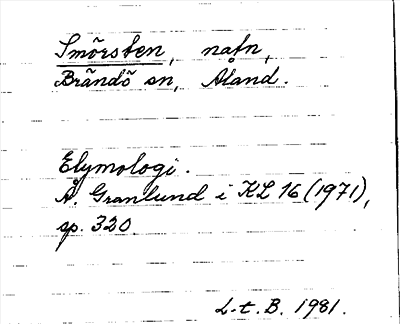 Smörsten, natn,
Brändö sn, Åland.
Etymologi.
Å. Granlund i KL 16 (1971),
sp. 320
L.t.B. 1981.